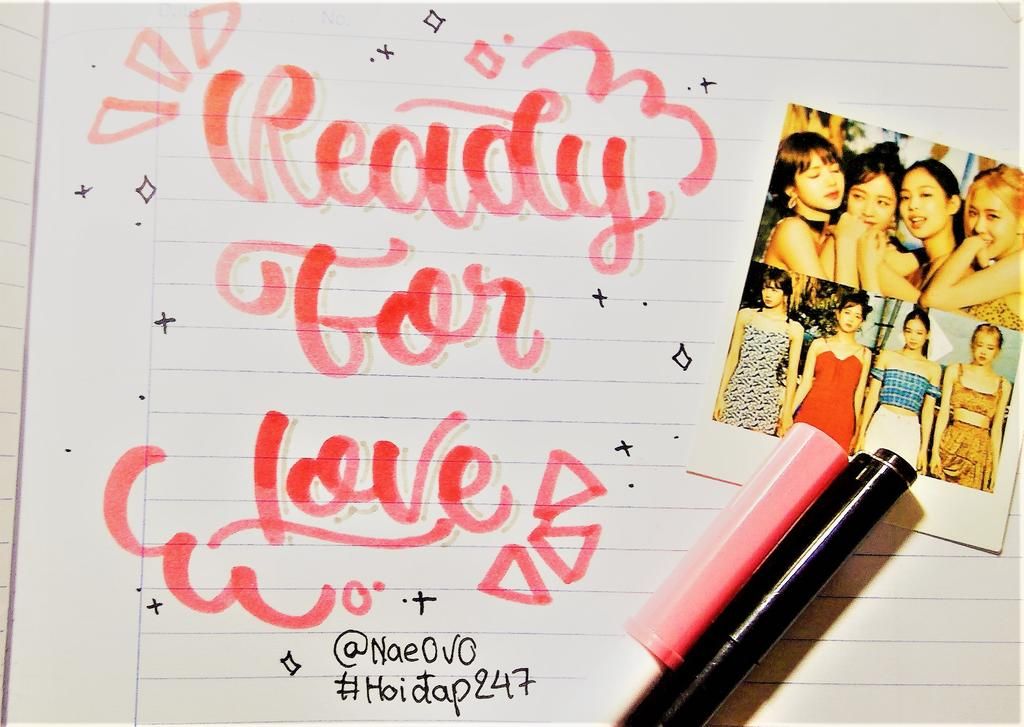 No.
Ready
For
Love
@NaeOvO
#Hoiđap247